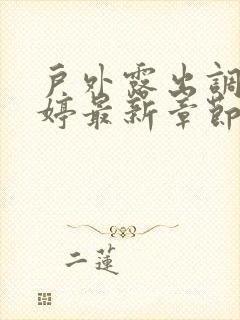 戶外露出調
婷最新章節
二蓮